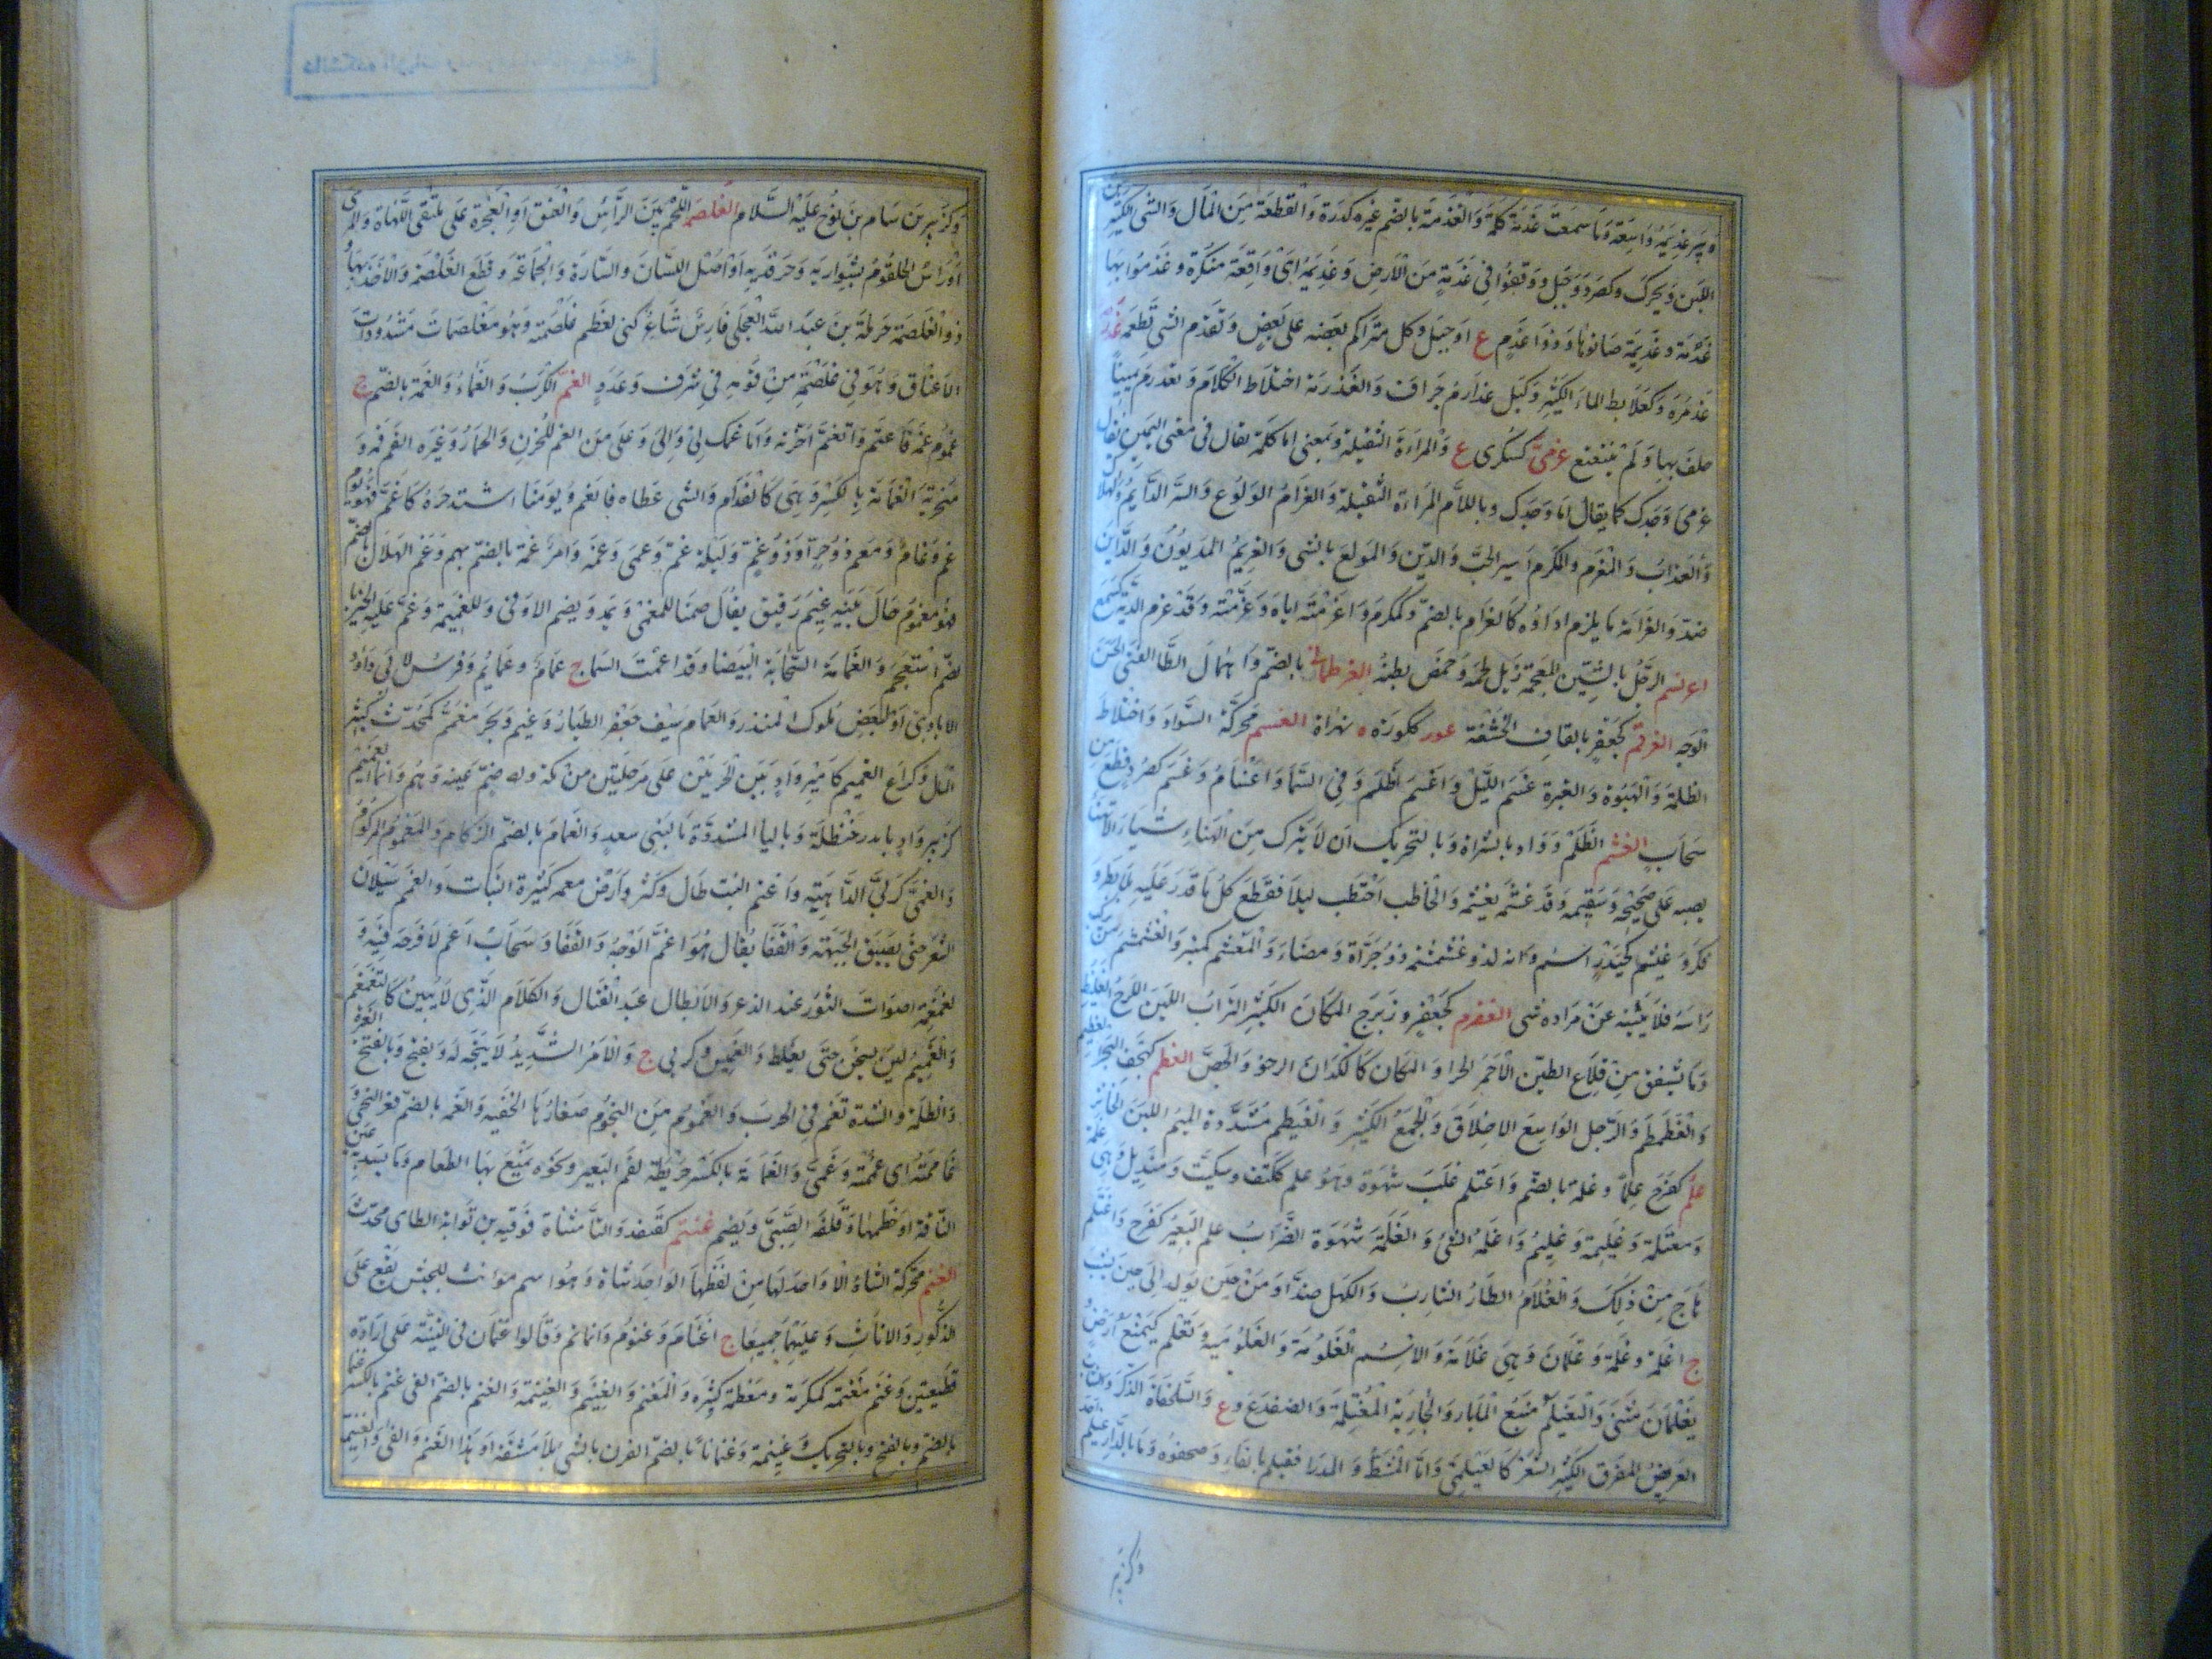 وبير غذيمة واسعة وما سمعت غذمة كلمة والغذمة بالضم غيره كدرة والقطعة من المال والشى الكثير من
اللبن ويحرك وكصرد وجبل ووقعوا فى غذمة من الارض وغذيمة اى واقعة منكرة وغذموا بها
غذمة وغذيمة صابوها وذو غذم ع او جبل وكل متراكم بعضه على بعض وتغذم الشى تطعمه
غذمره وكعلابط الماء الكثير وكيل غذارم جراف والغذرمة اختلاط الكلام وتغذرم يمينا
حلف بها ولم يتتعتع غرمى كسكرى ع والمراة الثقيلة وبمعنى اما كلمة يقال فى معنى اليمين يقال
غرمى وجدك كما يقال اما وجدك وباللام المراة الثقيلة والغرام الولوع والشر الدايم والهلاك
والعذاب والمغرم والمكرم اسير الحب والدين والمولع بالشى والغريم المديون والداين
ضد والغرامة ما يلزم اداؤه كالغرم بالضم وكمكرم واغرمته اياه وغرمته وقد غرم الدية كسمع
اغرنشم الرجل بالشين المعجمة ذبل لحمه وخمص بطنه الغرطمانى بالضم واهمال الطا الفتى الحسن
الوجه الغرقم كجعفر بالقاف الحشفة ه بهراة الغسم محركة السواد واختلاط
الظلمة والهبوة والغبرة غسم الليل واغسم اظلم وفى السما اغسام وغسم كصرد قطع من
سحاب الغشم الظلم وواد بالسراة وبالتحريك ان لا يترك من الهناء شيا
يصبه على صحيحه وسقيمه وقد غشمه يغشمه والحاطب احتطب ليلا فقطع كل ما قدر عليه بلا نظر و
فكر و غيثم كحيدر اسم وانه لذو غشمشمه ذو جراة ومضاء والمغشم كمنبر والغشمشم من يركب
راسه فلا يثنيه عن مراده شى الغضرم كجعفر وزبرج المكان الكثير التراب اللين اللزج الغليظ
وما تشقق من قلاع الطين الاحمر الحر او المكان كالكذان الرخو والجص الغطم كهجف البحر العظيم
والغطمطم والرجل الواسع الاخلاق والجمع الكثير والغيطم مشددة الميم اللبن الخاثر
غلم كفرح غلما وغلمة بالضم واغتلم غلب شهوة وهو غلم ككتف وسكيت ومنديل وهى غلمة
ومغتلمة وغليمة وغليم واغلمه الشى والغلمة شهوة الضراب غلم البعير كفرح واغتلم
هاج من ذلك والغلام الطار الشارب والكهل ضد او من حين يولد الى حين يشب
ج اغلمة وغلمة وغلمان وهى غلامة والاسم الغلومة والغلومية وتغلم كيمنع ارض
يغلمان مثنى والغيلم منبع الما فى البار والجارية المغتلمة والضفدع وع والسلحفاة الذكر والشاب
العريض المفرق الكثير الشعر كالغيلمى واما المشط والمدرا فقيلم بالفاء وصحفوه وما بالدار غيلم احد
وكزبير
وكزبير بن سام بن نوح عليه السلام الغلصمة اللحم بين الراس والعنق او العجرة على ملتقى اللهاة والمرى
او راس الحلقوم بشواربه وحرقدته او اصل اللسان والسارة والجماعة وقطع الغلصمة والاخذ بها و
ذو الغلصمة حرملة بن عبد الله العجلى فارس شاعر كنى لعظم غلصمته وهو مغلصمات مشدودات
الاعناق وهو فى غلصمة من قومه فى شرف وعدد الغم الكرب والغماء والغمة بالضم ج
غموم غمه فاغتم وانغم احزنه وما اغمك لى والى وعلى من الغم للحزن والحمار وغيره القم فمه و
منخريه الغمامة بالكسر وهى كالفدام والشى غطاه فانغم و يومنا اشتد حره كاغم فهو يوم
غم وغام ومغم ذو حر او ذو غم وليلة غم وغمى وغمة وامر غمة بالضم مبهم وغم الهلال بالضم
فهو مغموم حال بينه غيم رقيق يقال صمنا للغمى ويمد ويضم الاولى وللغميمة وغم عليه الخبر
بضم استعجم والغمامة السحابة البيضا وقد اغمت السما ج غمام وغمايم وفرس لابى داود
الايادى او لبعض ملوك المنذر والغمام سيف جعفر الطيار وغيم وبحر مغمم كمحدث كثير
الما وكراع الغميم كامير واد بين الحرمين على مرحلتين من مكة وضم غينه وهم وانما الغميم
كزبير واد بديار حنظلة وباليا المشددة ما لبنى سعد والغمام بالضم الزكام والمغموم المزكوم
والغمى كربى الداهية واغم النبت طال وكثر وارض معمة كثيرة النبات والغم سيلان
الشعر حتى يضيق الجبهة والقفا يقال هو اغم الوجه والقفا وسحاب اغم لا فرجة فيه و
الغمغمة اصوات الثور عند الذعر والابطال عند القتال والكلام الذى لا يبين كالتغمغم
والغميم لبن يسخن حتى يغلظ والغميس وكربى ج والامر الشديد لا يتجه له ويفتح وبالفتح الغبرة
والظلمة والشدة تغم فى الحرب والغموم من النجوم صغارها الخفية والغمة بالضم قعر النحى و
غاممته اى غممته وغمنى والغمامة بالكسر خريطة لفم البعير ونحوه يمنع بها الطعام وما يشد به عين
الناقة او خطمها وقلفة الصبى ويضم غنتم كقنفذ والتا مثناة فوقية بن ثوابة الطاى محدث
الغنم محركة الشاء لا واحد لها من لفظها الواحد شاة وهو اسم مونث للجنس يقع على
الذكور والاناث وعليهما جميعا ج اغنام وغنوم واغانم وقالوا غنمان فى التثنية على ارادة
قطيعتين وغنم مغنمة كمكرمة ومعظمة كثيرة والمغنم والغنيم والغنيمة والغنم بالضم الفى غنم بالكسر غنما
بالضم وبالفتح وبالتحريك وغنيمة وغنمانا بالضم الفوز بالشى بلا مشقة او هذا الغنم والفى الغنيمة